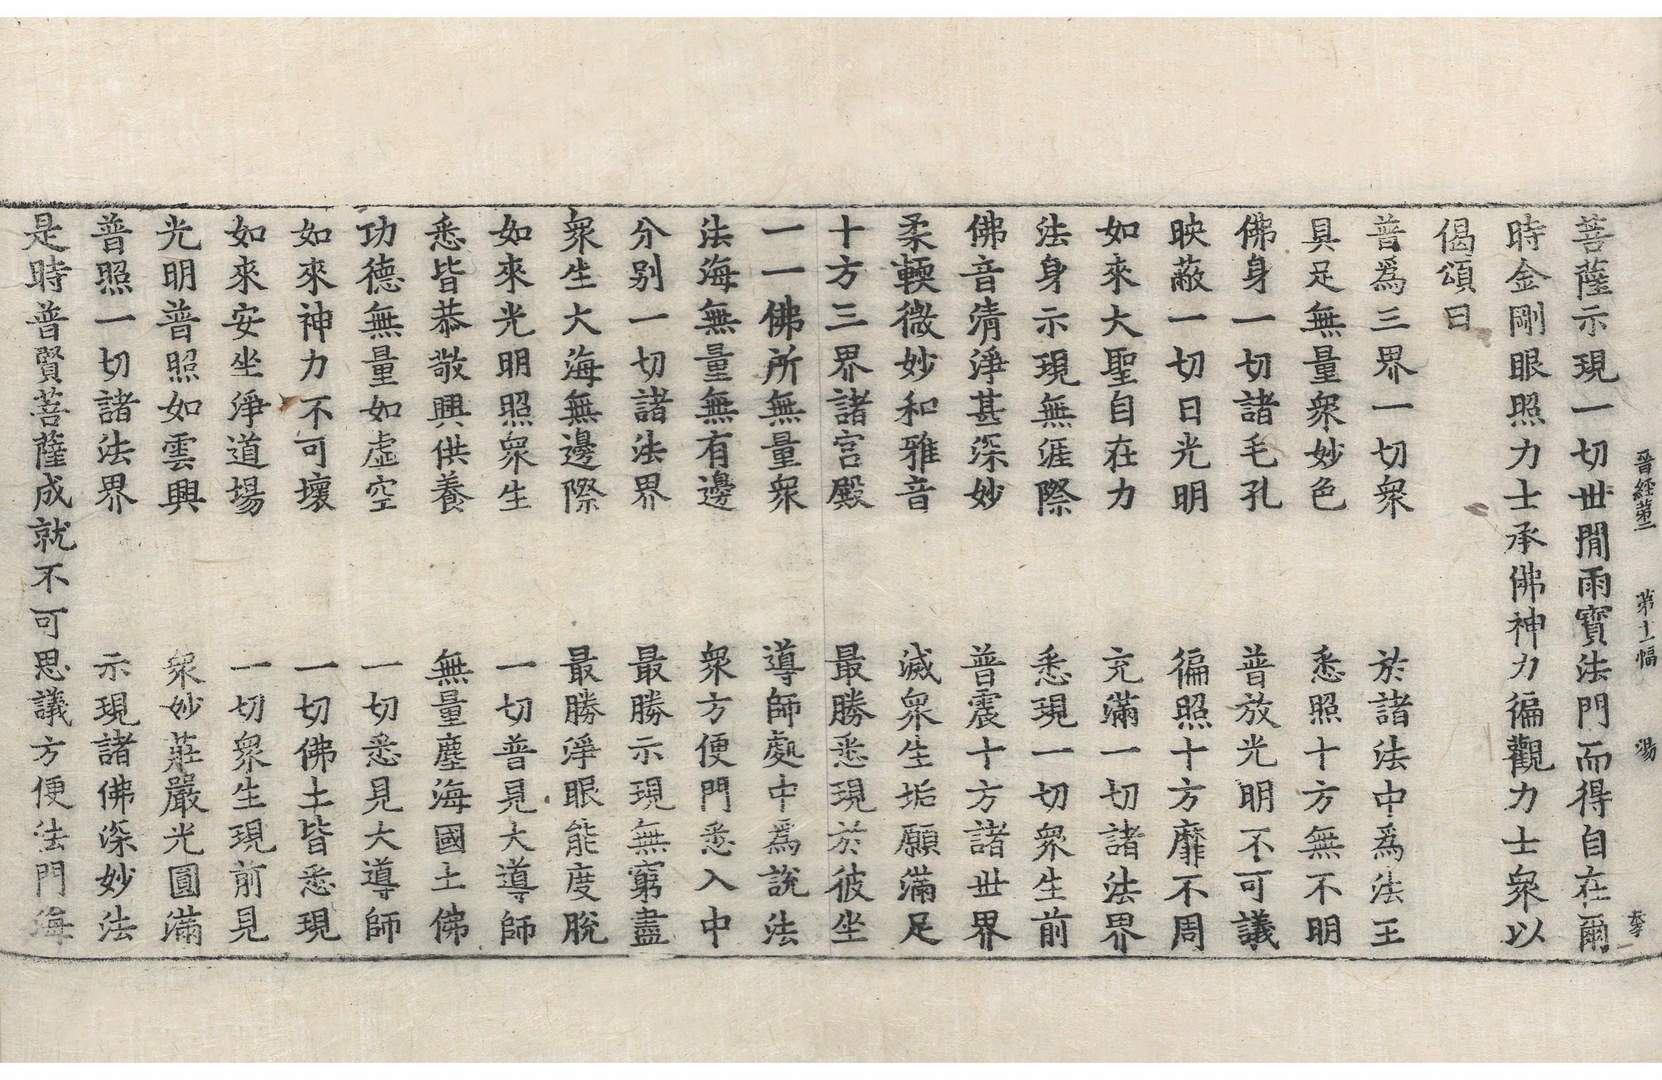 晉經第二 第十一幅 湯
菩薩示現一切世間雨寶法門而得自在爾
時金剛眼照力士承佛神力徧觀力士衆以
偈頌曰
普爲三界一切衆 於諸法中爲法王
具足無量衆妙色 悉照十方無不明
佛身一切諸毛孔 普放光明不可議
映蔽一切日光明 徧照十方靡不周
如來大聖自在力 充滿一切諸法界
法身示現無涯際 悉現一切衆生前
佛音清淨甚深妙 普震十方諸世界
柔輭微妙和雅音 滅衆生垢願滿足
十方三界諸宮殿 最勝悉現於彼坐
一一佛所無量衆 導師處中爲說法
法海無量無有邊 衆方便門悉入中
分别一切諸法界 最勝示現無窮盡
衆生大海無邊際 最勝淨眼能度脫
如來光明照衆生 一切普見大導師
悉皆恭敬興供養 無量塵海國土佛
功德無量如虛空 一切悉見大導師
如來神力不可壞 一切佛土皆悉現
如來安坐淨道場 一切衆生現前見
光明普照如雲興 衆妙莊嚴光圓滿
普照一切諸法界 示現諸佛深妙法
是時普賢菩薩成就不可思議方便法門海